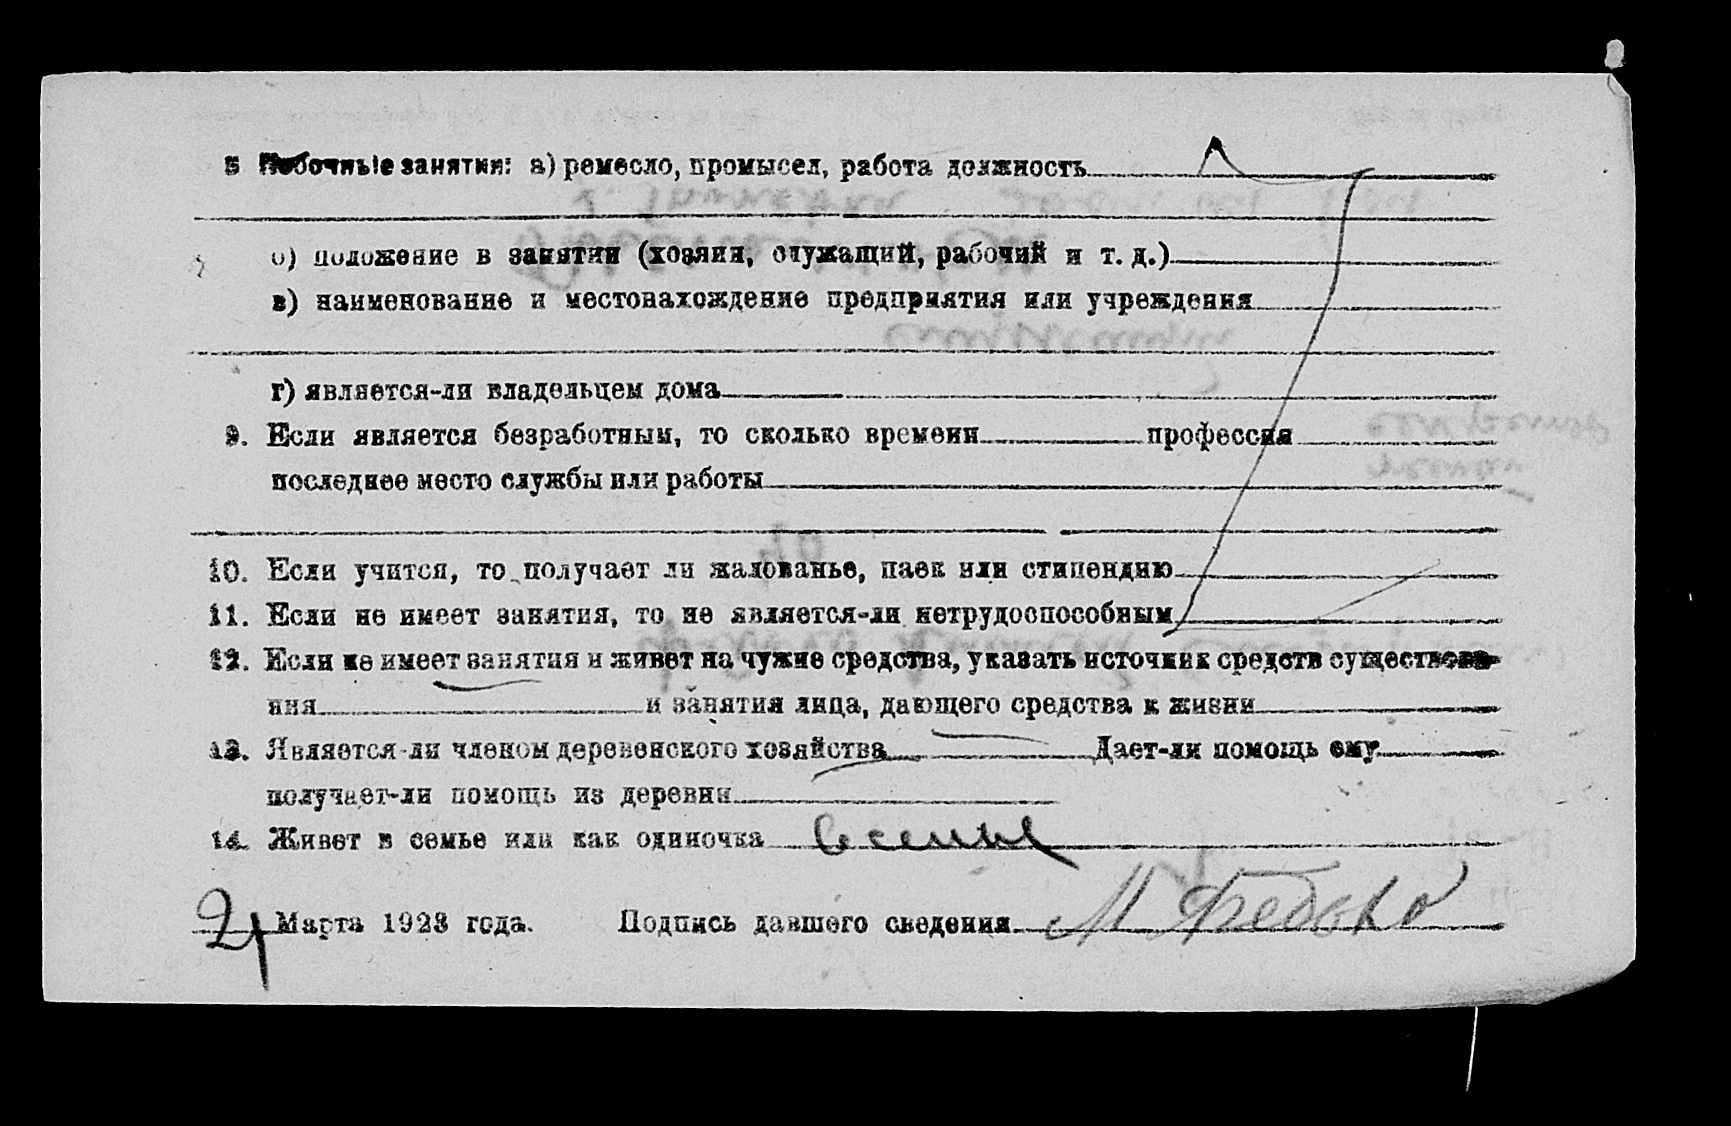 Побочные занятия: а) ремесло, промысел, работа должность
б) положение в занятии (хозяин, служащий, рабочий и т. д.)
в) наименование и местонахождение предприятия или учреждения
г) является-ли владельцем дома
9. Если является безработным, то сколько времени профессия
последнее место службы или работы
10. Если учится, то получает ли жалованье, паек или стипендию
11. Если не имеет занятия, то не является-ли нетрудоспособным
12. Если не имеет занятия и живет на чужие средства, указать источник средств существова-
ния и занятия лица, дающего средства к жизни
13. Является-ли членом деревенского хозяйства Дает-ли помощь ему
получает-ли помощь из деревни
14. Живет в семье или как одиночка В семье
Марта 1923 года. Подпись давшего сведения М